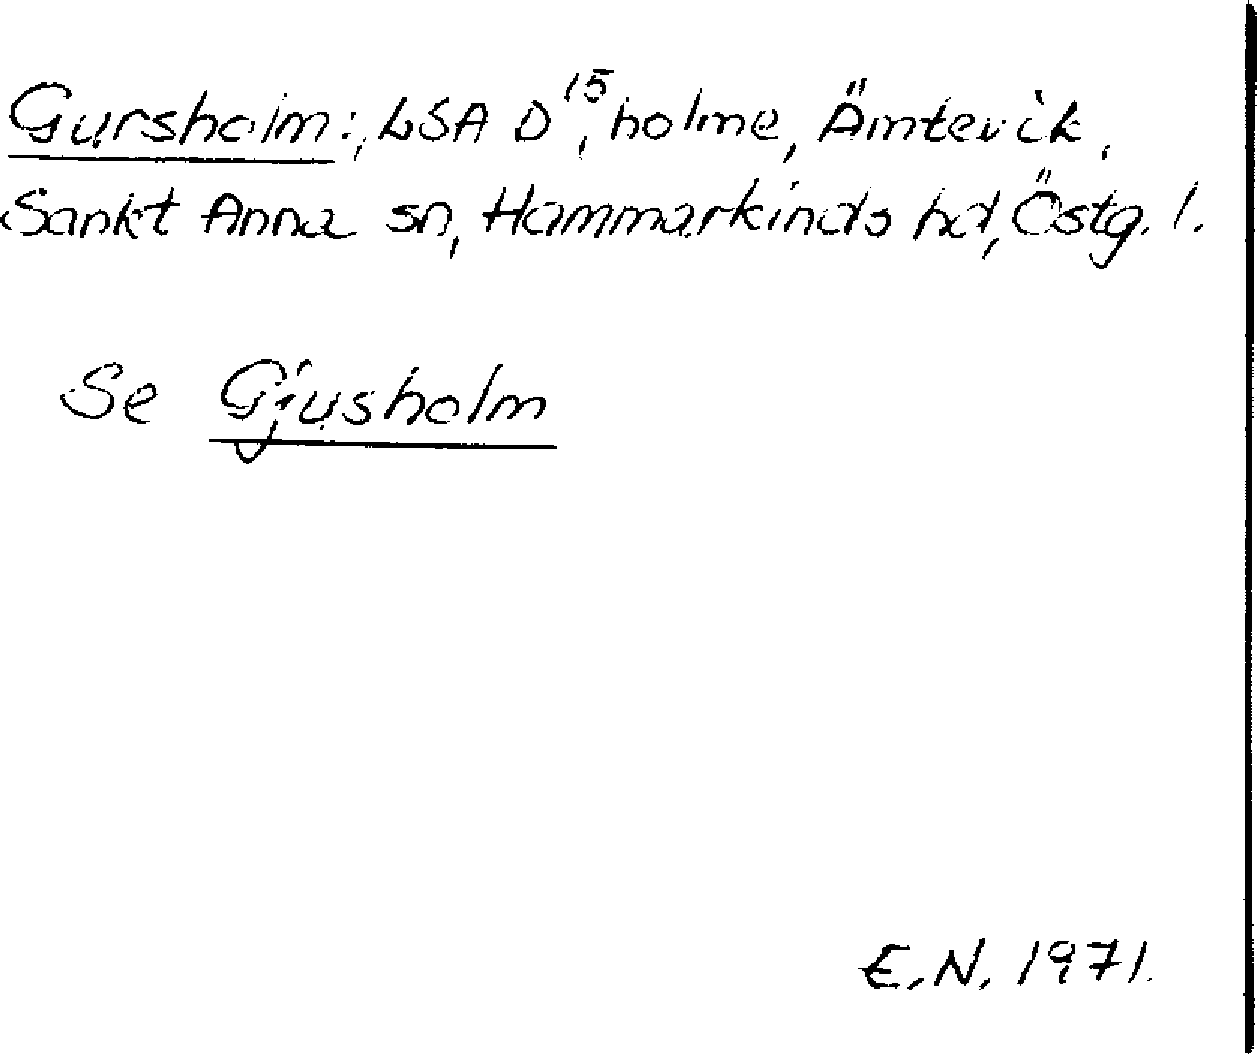 Gursholm:, LSA D 15, holme, Ämtevik,
Sankt Anna sn, Hammarkinds hd, Östg. l.
Se Gjusholm
E.N. 1971.